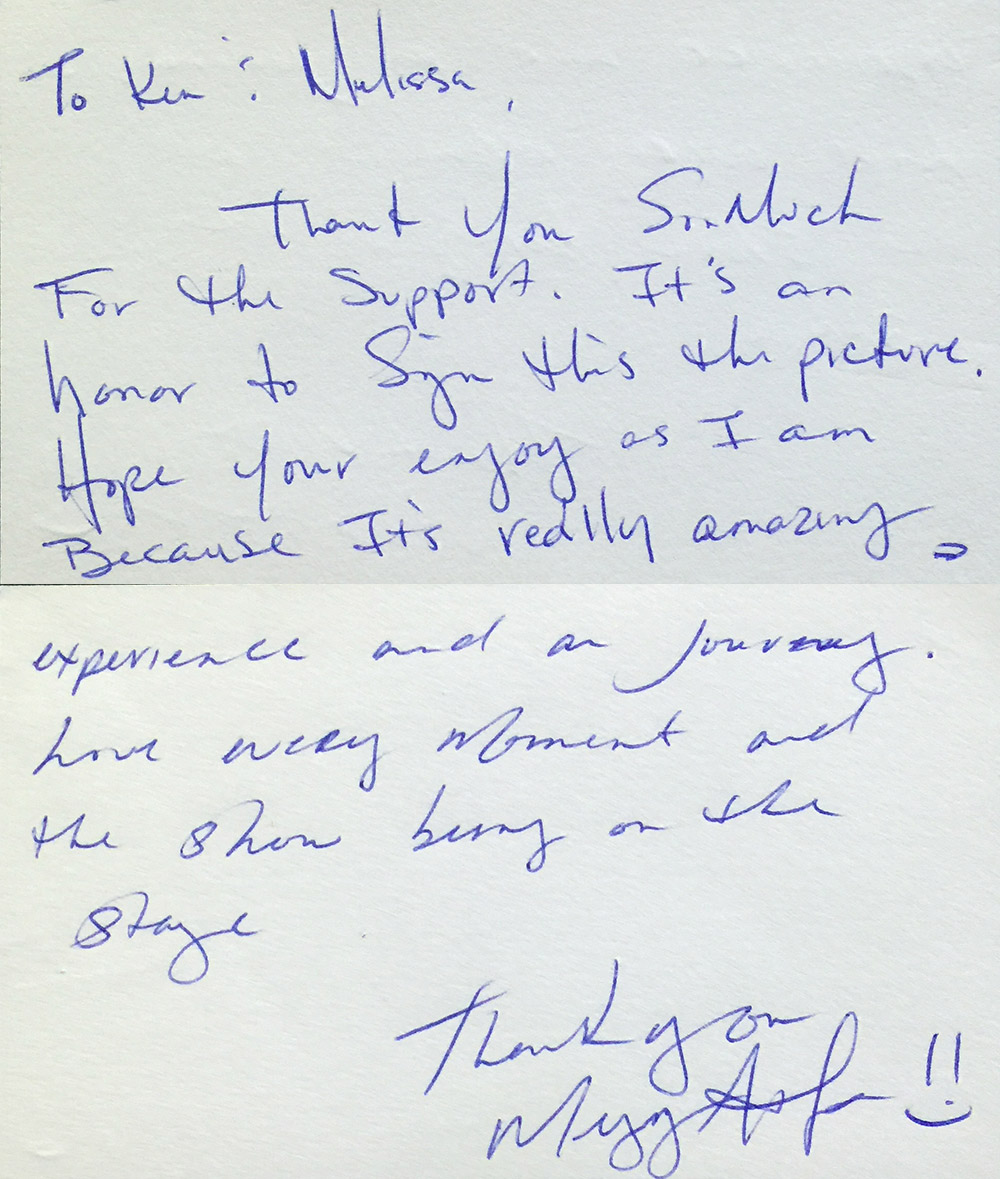 To Ken & Melissa,
Thank You So Much
For the Support. It's an
honor to Sign this the picture.
Hope your enjoy as I am
Because It's really amazing
experience and an Journey.
Love every Moment and
the show being on the
stage
Thank you